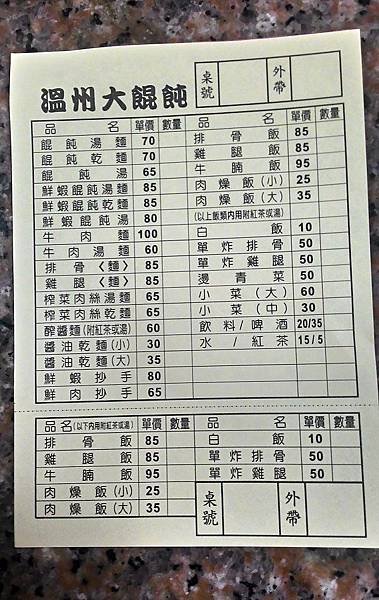 溫州大餛飩 桌號 外帶
品名 單價 數量 品名 單價 數量
餛飩湯麵 70
餛飩乾麵 70
餛飩湯 65
鮮蝦餛飩湯麵 85
鮮蝦餛飩乾麵 85
鮮蝦餛飩湯 80
牛肉麵 100
牛肉湯麵 60
排骨〈麵〉 85
雞腿〈麵〉 85
榨菜肉絲湯麵 65
榨菜肉絲乾麵 65
酢醬麵(附紅茶或湯) 60
醬油乾麵(小) 30
醬油乾麵(大) 35
鮮蝦抄手 80
鮮肉抄手 65
排骨飯 85
雞腿飯 85
牛腩飯 95
肉燥飯(小) 25
肉燥飯(大) 35
(以上飯類內用附紅茶或湯)
白飯 10
單炸排骨 50
單炸雞腿 50
燙青菜 50
小菜(大) 60
小菜(中) 30
飲料/啤酒 20/35
水/紅茶 15/5
品名(以下內用附紅茶或湯) 單價 數量 品名 單價 數量
排骨飯 85
雞腿飯 85
牛腩飯 95
肉燥飯(小) 25
肉燥飯(大) 35
白飯 10
單炸排骨 50
單炸雞腿 50
桌號 外帶